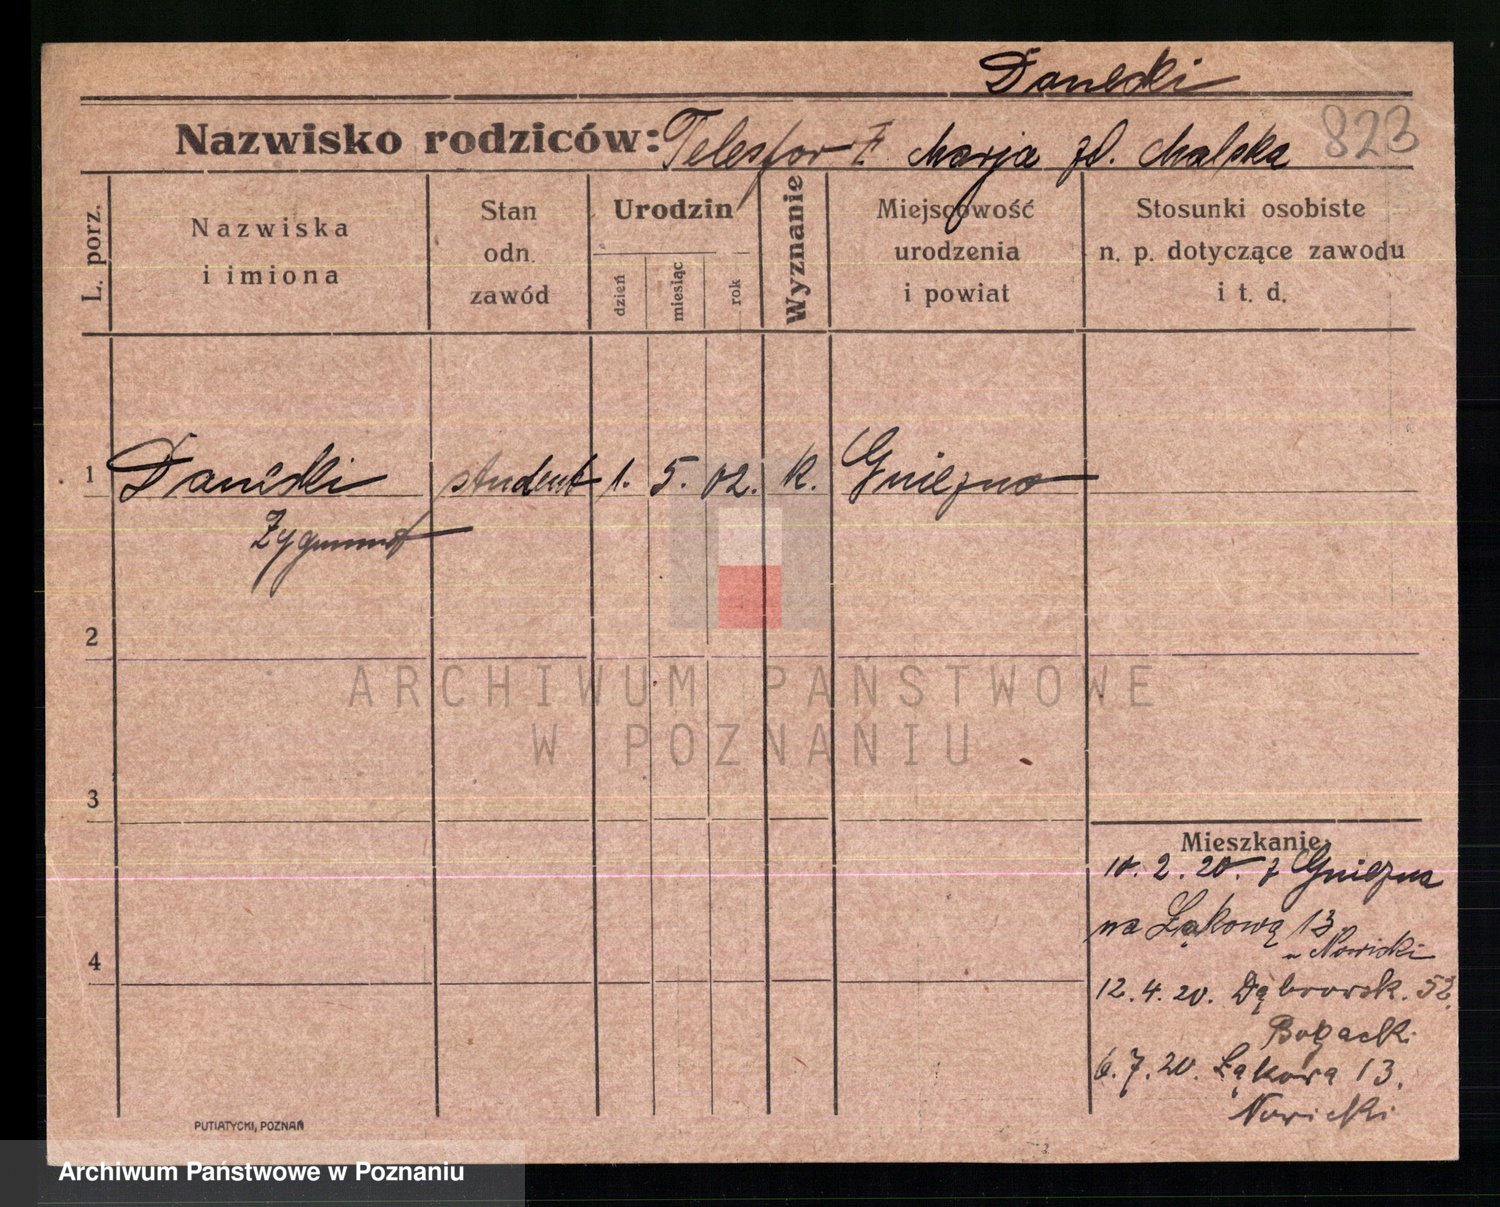 Danecki
Nazwisko rodziców: Telesfor i Marja zd. Malska
823
L. porz.
Nazwiska
i imiona
Stan
odn.
zawód
Urodzin
dzień
miesiąc
rok
Wyznanie
Miejscowość
urodzenia
i powiat
Stosunki osobiste
n. p. dotyczące zawodu
i t. d.
1 Danecki student 1. 5. 02. k. Gniezno
Zygmunt
2
3
4
Mieszkanie
10. 2. 20. z Gniezna
na Łąkową 13
u Nowicki
12. 4. 20. Dąbrowsk. 52.
Bogacki
6. 7. 20. Łąkowa 13.
Nowicki
PUTIATYCKI, POZNAŃ
ARCHIWUM PAŃSTWOWE
W POZNANIU
Archiwum Państwowe w Poznaniu